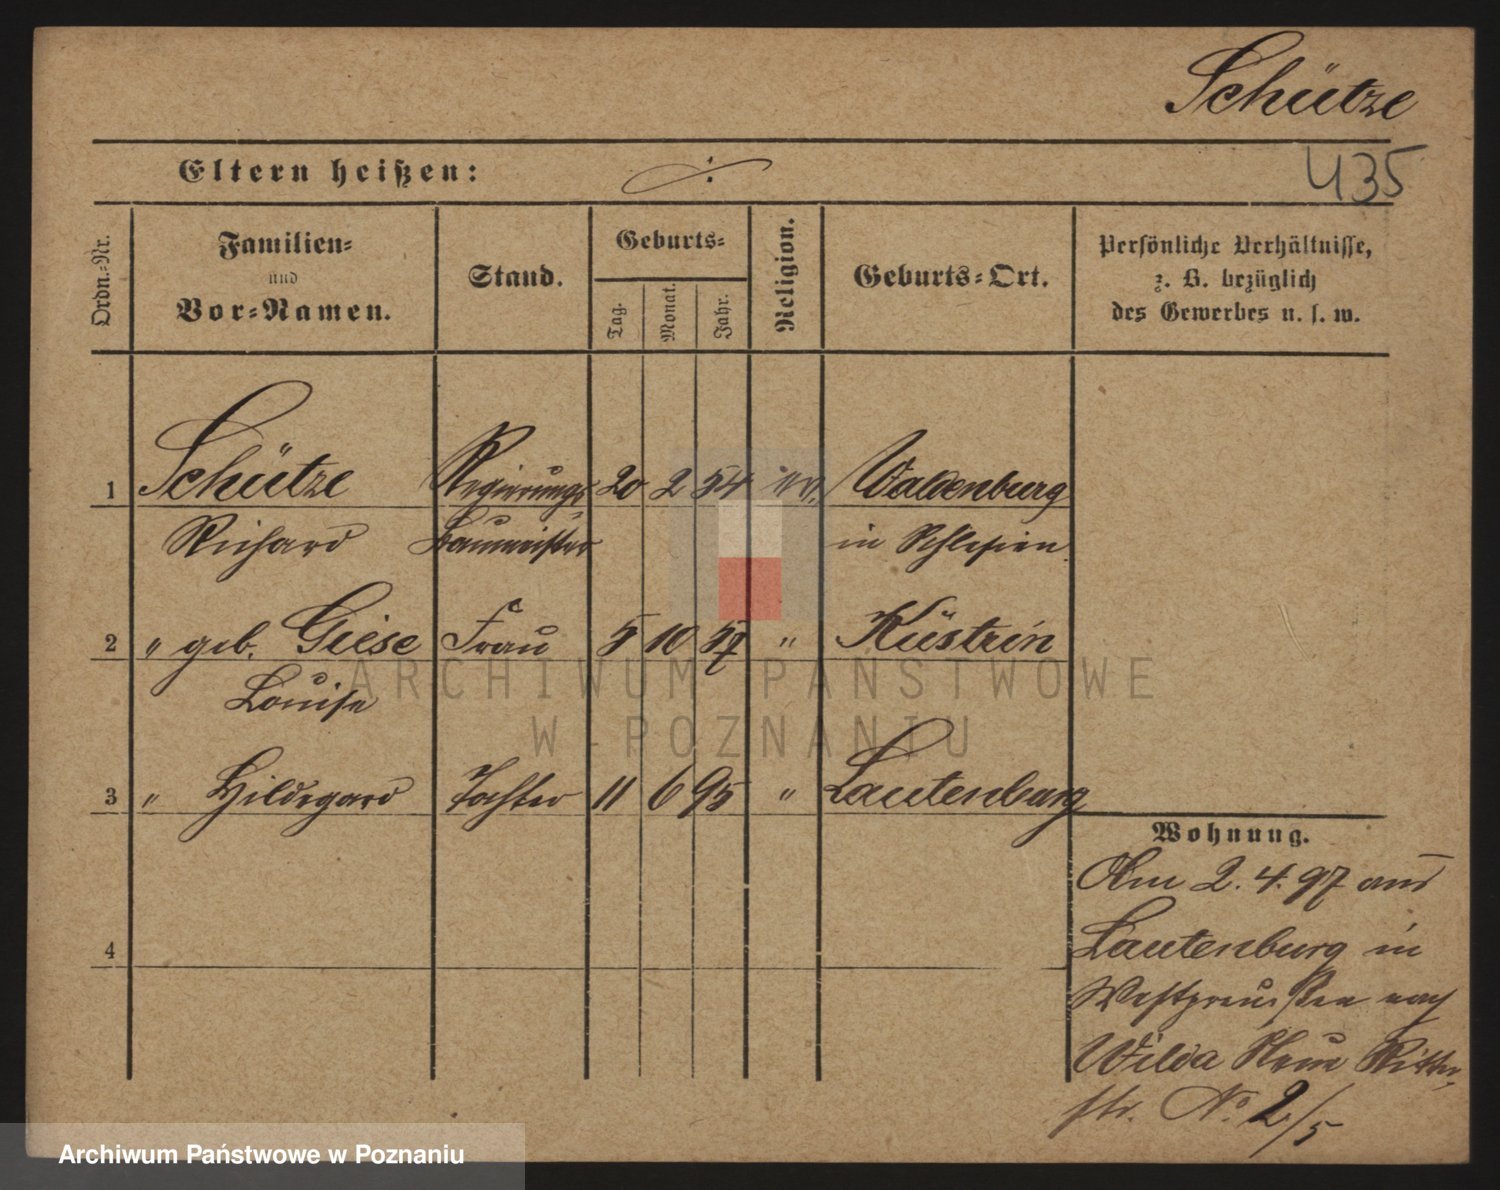 Schütze
435
Eltern heißen: ./.
Ordn.=Nr.
Familien=
und
Vor=Namen.
Stand.
Geburts=
Tag.
Monat.
Jahr.
Religion.
Geburts=Ort.
Persönliche Verhältnisse,
z. B. bezüglich
des Gewerbes u. s. w.
1 Schütze Regierungs 20 2 54 ev. Waldenburg
Richard Baumeister in Schlesien.
2 " geb. Giese Frau 5 10 57 " Küstrin
Louise
3 " Hildegard Tochter 11 6 95 " Lautenburg
4
Wohnung.
Am 2. 4. 97 aus
Lautenburg in
Westpreußen nach
Wilda Neue Ritter
str. No 2/5
ARCHIWUM PAŃSTWOWE
W POZNANIU
Archiwum Państwowe w Poznaniu